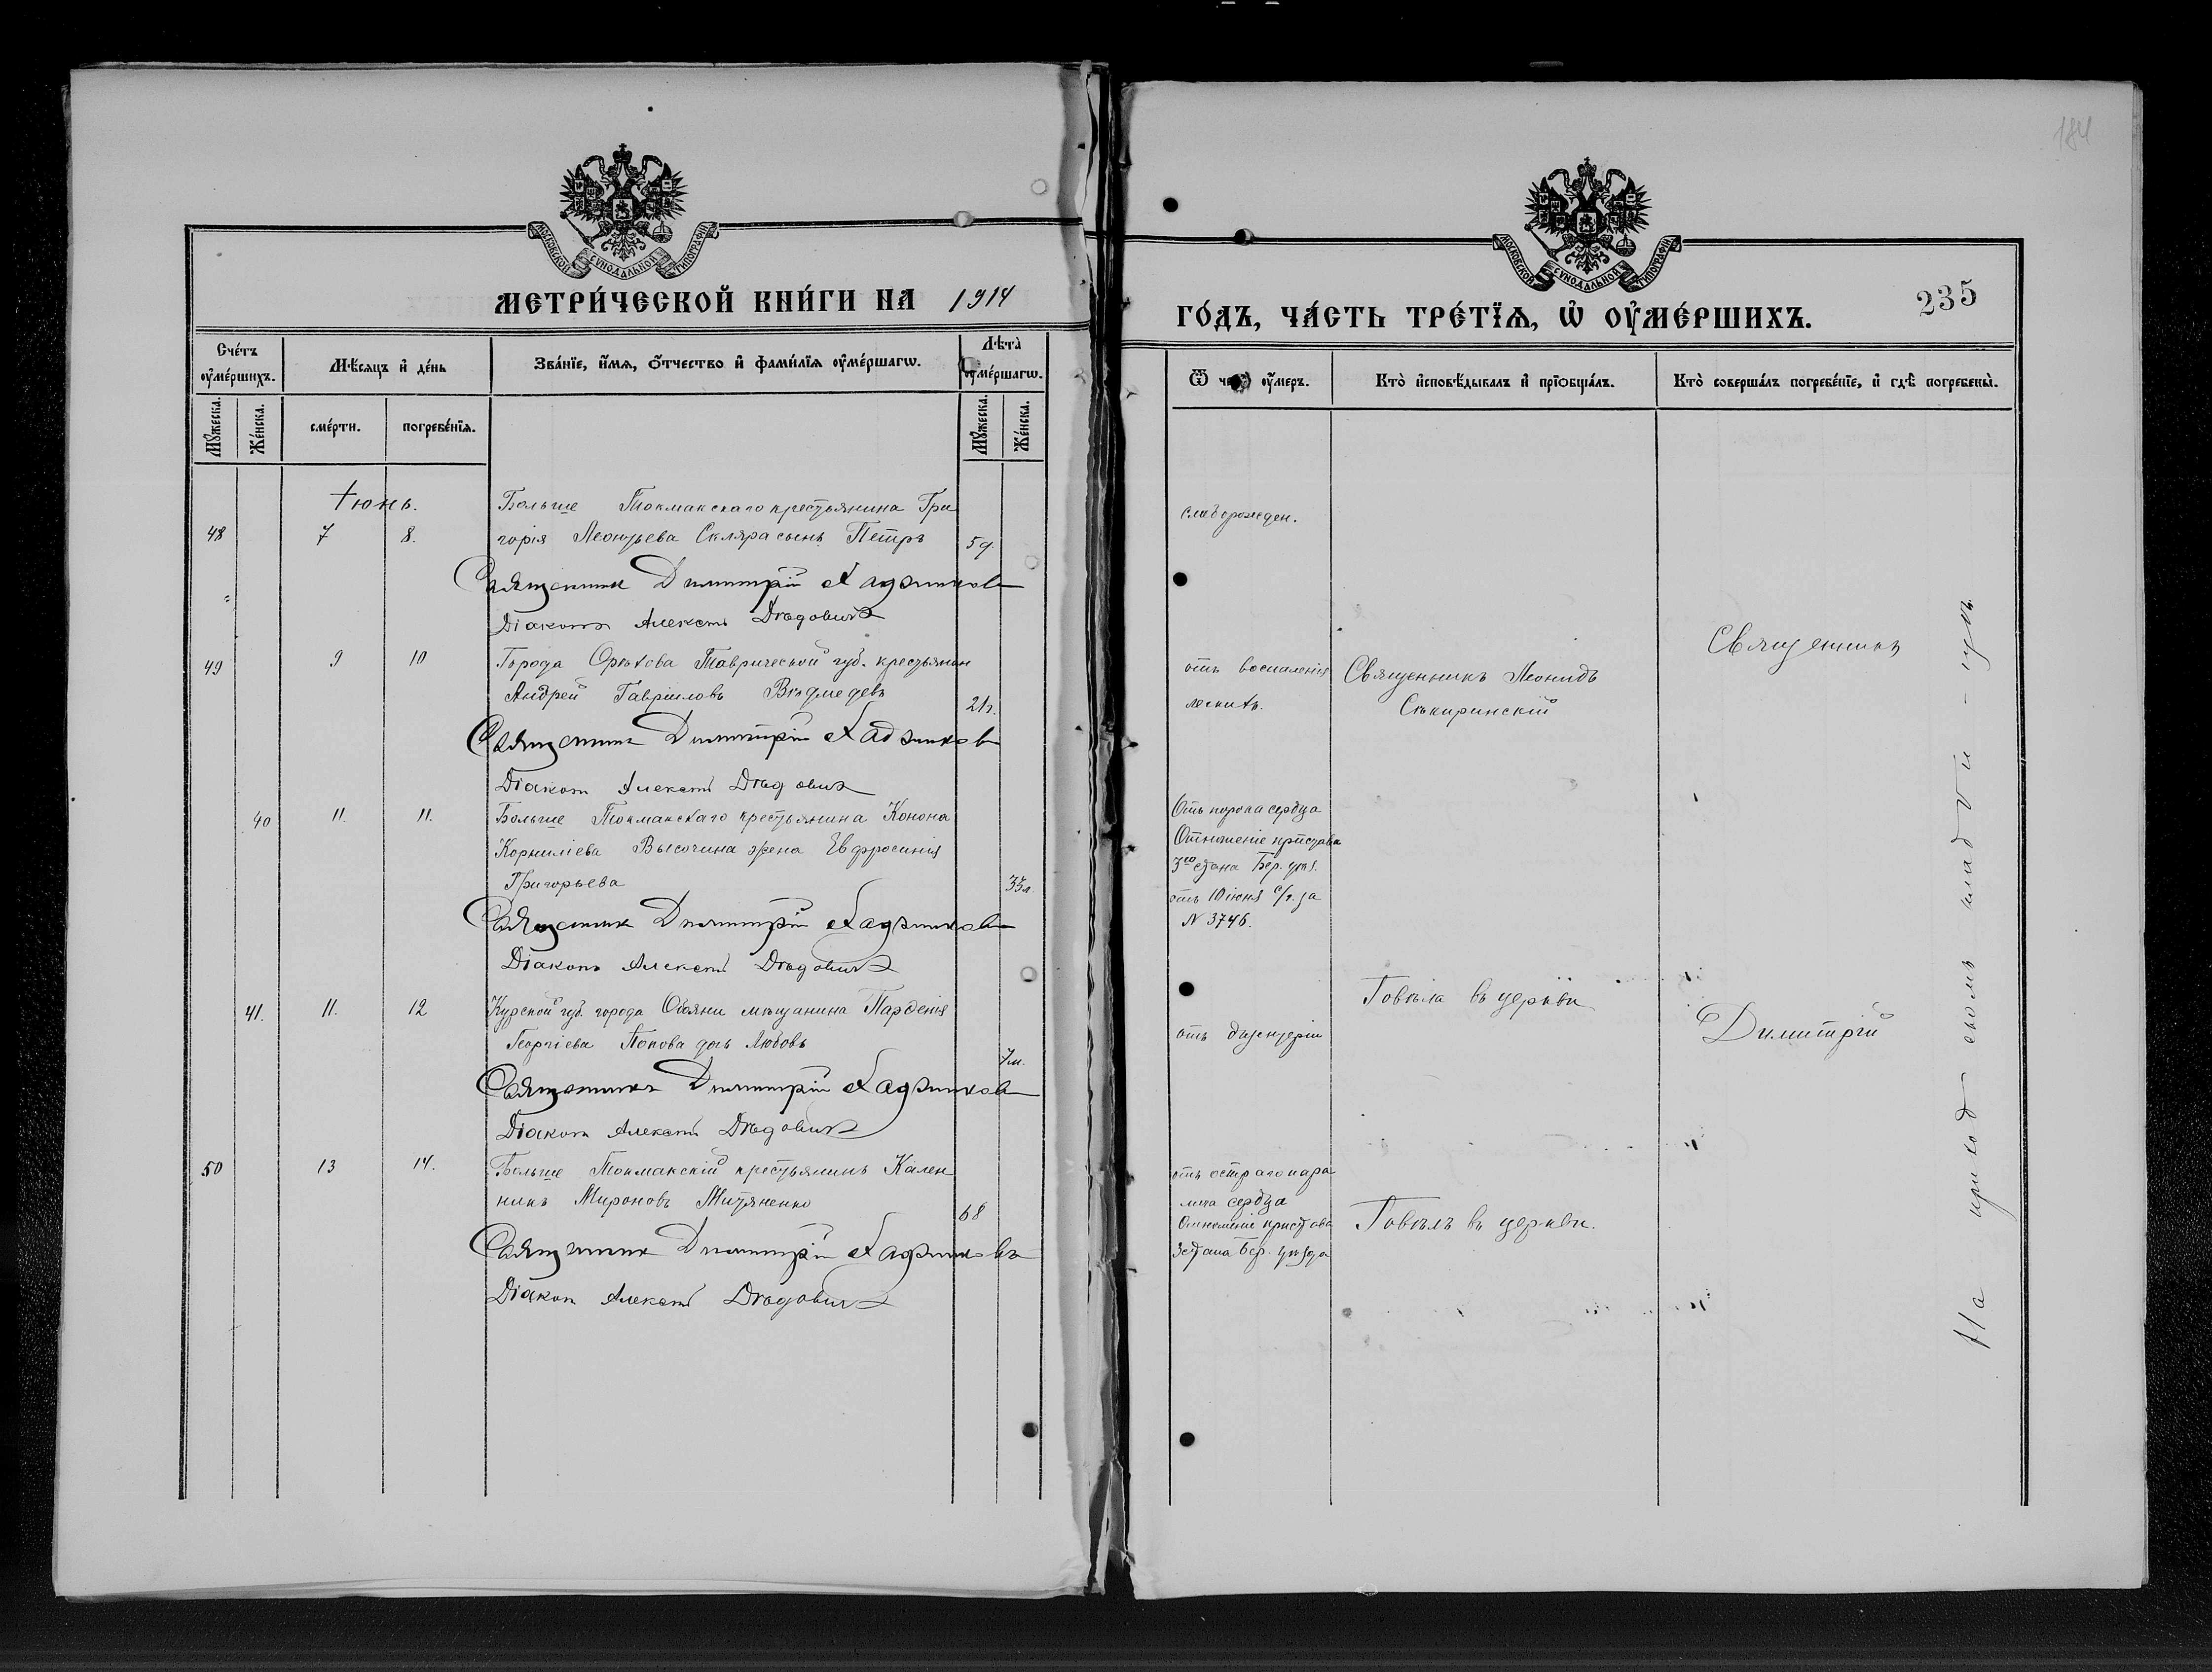 184
МОСКОВСКОЙ СѴНОДАЛЬНОЙ ТИПОГРАФІИ
МЕТРИ́ЧЕСКОЙ КНИ́ГИ НА 1914
Сче́тъ оу҆ме́ршихъ.
Мꙋ́жеска.
Же́нска.
Мѣ́сяцъ и҆ де́нь
сме́рти.
погребе́нїѧ.
Зва́нїе, и҆́мѧ, ѻ҆́тчество и҆ фами́лїѧ оу҆ме́ршагѡ.
Лѣ́та оу҆ме́ршагѡ.
Мꙋ́жеска.
Же́нска.
Іюнь.
48 7 8. Больше Токмакскаго крестьянина Гри
горія Леонтьева Скляра сынъ Петръ 5 д.
Священникъ Димитрій Хаджиковъ
Діаконъ Алексѣй Дѣдовичъ
49 9 10 Города Орѣхова Таврической губ. крестьянин
Андрей Гавріиловъ Вѣдмедевъ 21 г.
Священникъ Димитрій Хаджиковъ
Діаконъ Алексѣй Дѣдовичъ
40 11. 11. Больше Токмакскаго крестьянина Конона
Корниліева Высочина жена Евфросинія
Григорьева 33 л.
Священникъ Димитрій Хаджиковъ
Діаконъ Алексѣй Дѣдовичъ
41. 11. 12 Курской губ. города Обояни мѣщанина Парѳенія
Георгіева Попова дочь Любовь 7 м.
Священникъ Димитрій Хаджиковъ
Діаконъ Алексѣй Дѣдовичъ
50 13 14. Больше Токмакскій крестьянинъ Кален
никъ Мироновъ Митяненко 68
Священникъ Димитрій Хаджиковъ
Діаконъ Алексѣй Дѣдовичъ
МОСКОВСКОЙ СѴНОДАЛЬНОЙ ТИПОГРАФІИ
ГО́ДЪ, ЧА́СТЬ ТРЕ́ТЇѦ, Ѡ҆ ОУ҆МЕ́РШИХЪ.
235
Ѿ чегѡ̀ оу҆́меръ.
Кто̀ и҆сповѣ́дывалъ и҆ прїѻбща́лъ.
Кто̀ соверша́лъ погребе́нїе, и҆ гдѣ̀ погребены̀.
слаборожден.
отъ воспаленія
легкихъ.
Священникъ Леонидъ
Сѣкиринскій
Священникъ
Отъ порока сердца
Отношеніе пристава
3го стана Бер. уѣз.
отъ 10 іюня с/г. за
N 3746.
Говѣла въ церкви
отъ дизентеріи
Димитрій
отъ остраго пара
лича сердца
Отношеніе пристава
3 стана Бер. уѣзда
Говѣлъ въ церкви.
На приход